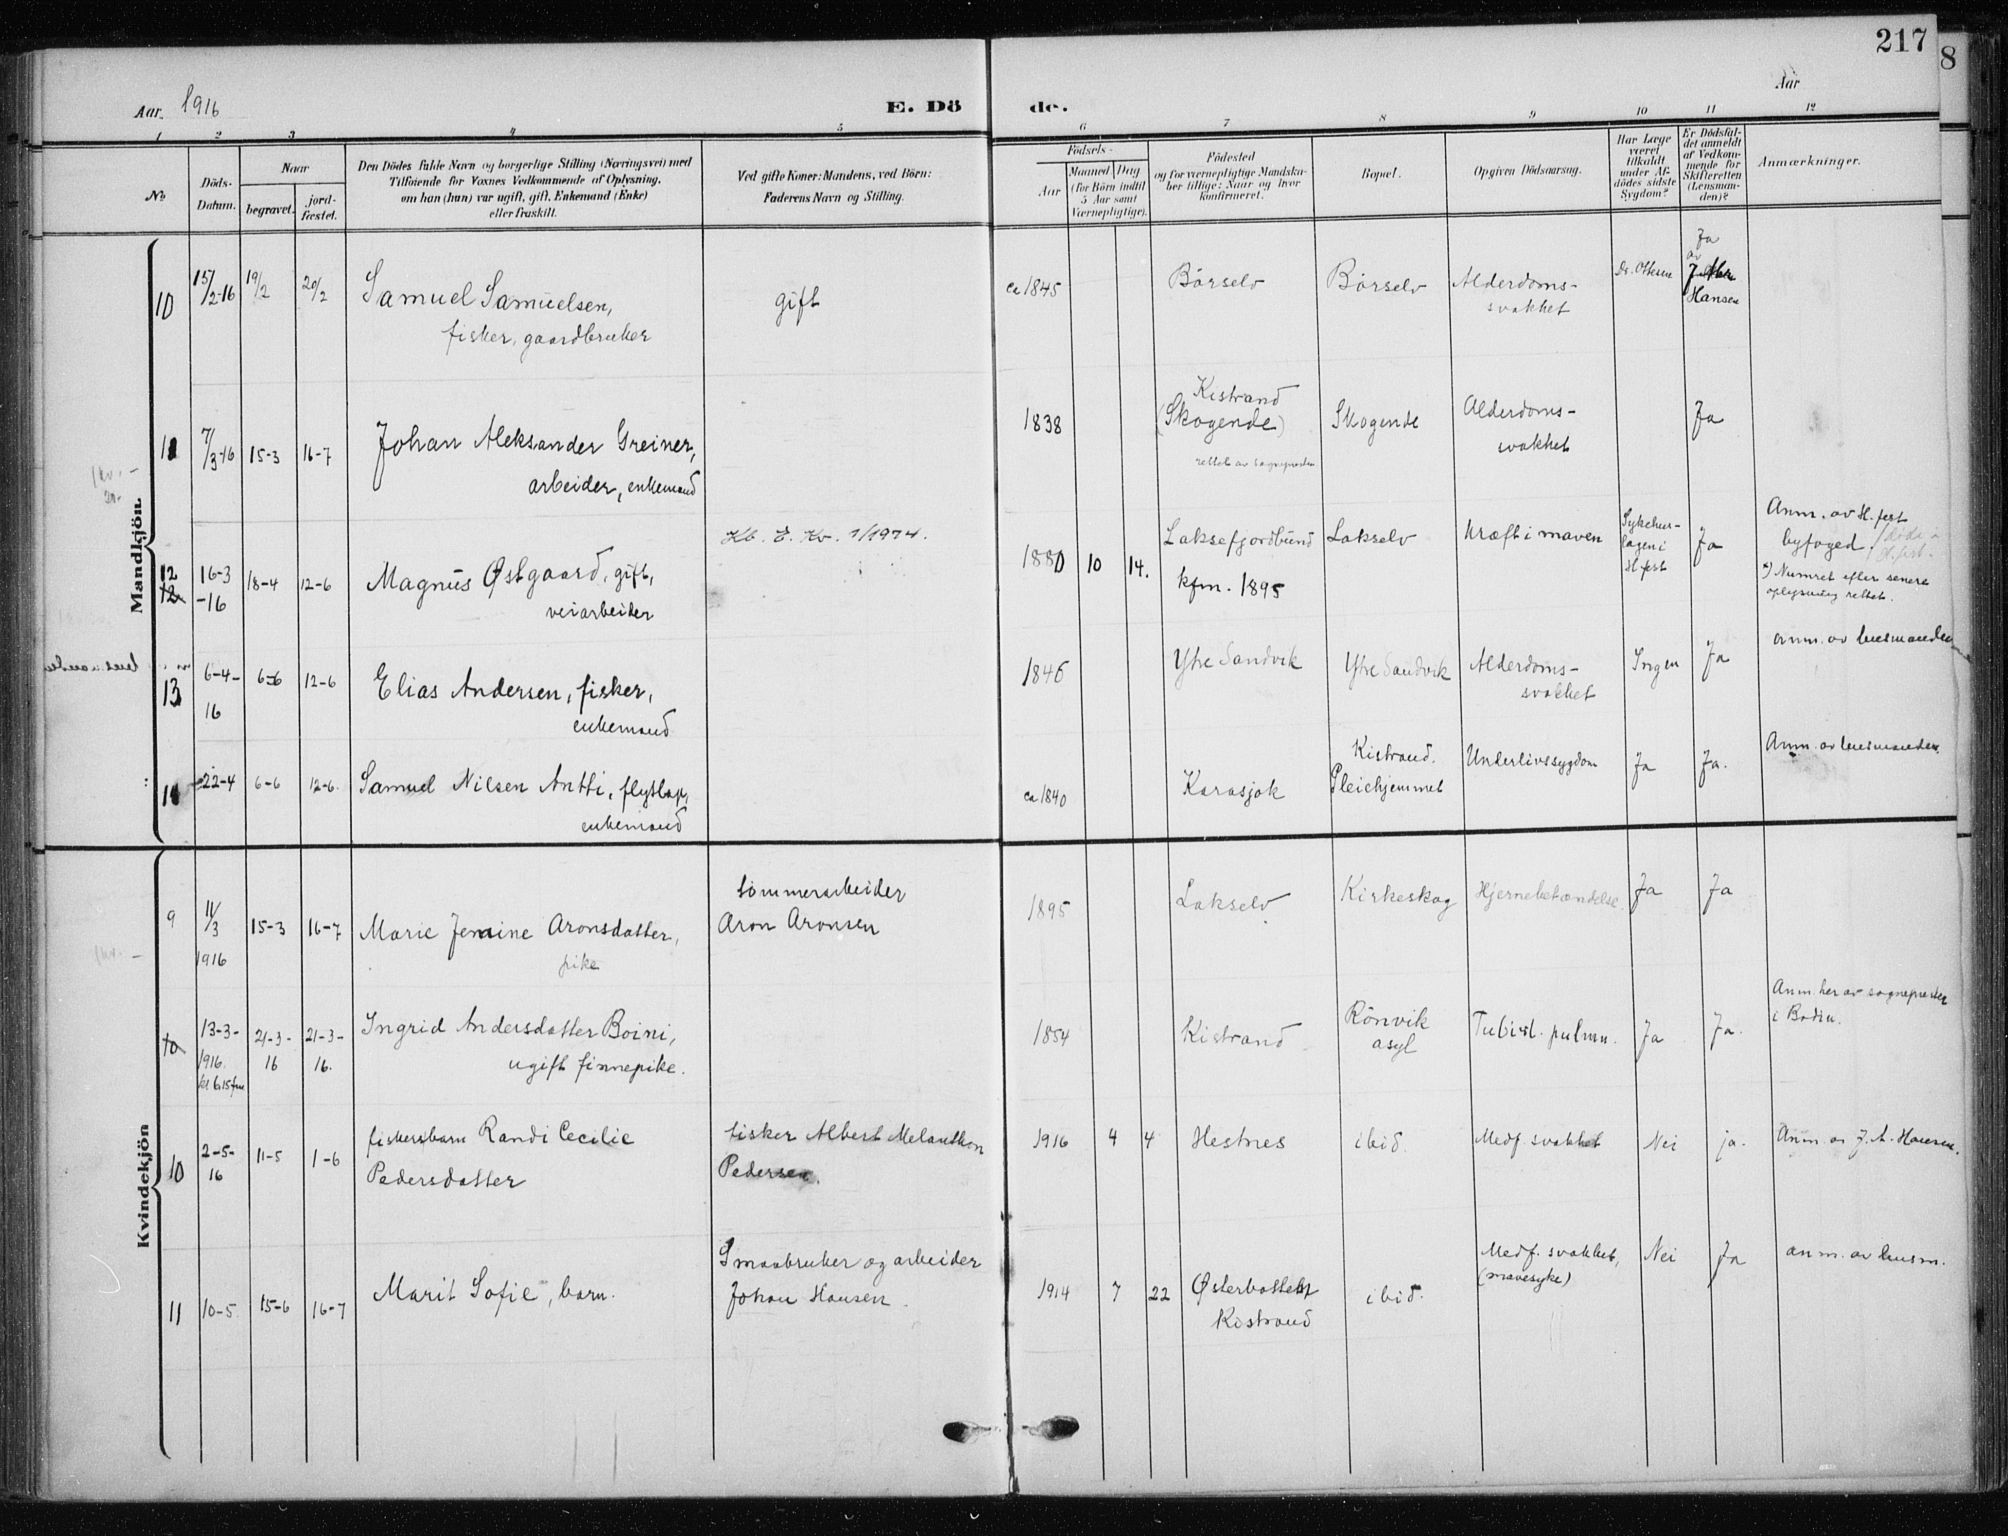 217
8
Aar 1916
E. Dö
de.
Aar
1 2 3 4 5 6 7 8 9 10 11 12
No
Döds-
Datum.
Naar
begravet.
jord-
fæstet.
Den Dödes fulde Navn og borgerlige Stilling (Næringsvei) med
Tilföiende for Voxnes Vedkommende af Oplysning,
om han (hun) var ugift, gift, Enkemand (Enke)
eller fraskilt.
Ved gifte Koner: Mandens, ved Börn:
Faderens Navn og Stilling.
Födsels-
Aar
Maaned Dag
(for Börn indtil
5 Aar samt
Værnepligtige).
Födested
og for værnepligtige Mandska-
ber tillige: Naar og hvor
konfirmeret.
Bopæl.
Opgiven Dödsaarsag.
Har Læge
været
tilkaldt
under Af-
dödes sidste
Sygdom?
Er Dödsfal-
det anmeldt
af Vedkom-
mende for
Skifteretten
(Lensman-
den)?
Anmærkninger.
Mandkjön
10 15/2-16 19/2 20/2 Samuel Samuelsen,
fisker, gaardbruker
gift
ca 1845 Börselv Börselv Alderdoms-
svakhet
Dr. Ottesen
Ja
av
Hansen
11 7/3-16 15-3 16-7 Johan Aleksander Greiner,
arbeider, enkemand
1838 Kistrand
(Skogende)
rettet av sognepresten
Skogende Alderdoms-
svakhet
Ja
12 12 16-3
-16
18-4 12-6 Magnus Østgaard, gift,
veiarbeider
Kb. E. Kv. 7/1974.
1880 10 14. Laksefjordbund
kfm. 1895
Lakselv Kræft i maven
Sykehus-
lægen i
H.fest
Ja
Anm. av H.fest
byfoged.
*) Numret efter senere
oplysning rettet.
13 6-4-
16
6-6 12-6 Elias Andersen, fisker,
enkemand
1846 Ytre Sandvik Ytre Sandvik Alderdoms-
svakhet
Ingen Ja anm. av lensmanden
14 22-4 6-6 12-6. Samuel Nilsen Antti, flytlap,
enkemand
ca 1840 Karasjok Kistrand.
Pleiehjemmet
Underlivssygdom Ja Ja. Anm. av lensmanden.
Kvindekjön
9 11/3
1916
15-3 16-7 Marie Jenine Aronsdatter,
pike
tömmerarbeider
Aron Aronsen
1895 Lakselv Kirkeskog Hjernebetændelse. Ja Ja
10 13-3-
1916.
kl 6.15 fm
21-3-
16
21-3-
16.
Ingrid Andersdatter Boini,
ugift finnepike.
1854 Kistrand Rönvik
asyl
pulm. Ja Ja.
Anm. her av sognepresten
i Bodin.
10 2-5-
16
11-5 1-6 fiskersbarn Randi Cecilie
Pedersdatter
fisker Albert Melankton
Pedersen.
1916 4 4 Hestnes ibid. Medf. svakhet Nei ja. Anm. av J. A. Hansen.
11 10-5. 15-6 16-7 Marit Sofie, barn.
Smaabruker og arbeider
Johan Hansen.
1914 7 22 Østerbotten
Kistrand
ibid. Medf. svakhet,
(mavesyke)
Nei Ja anm. av lensm.